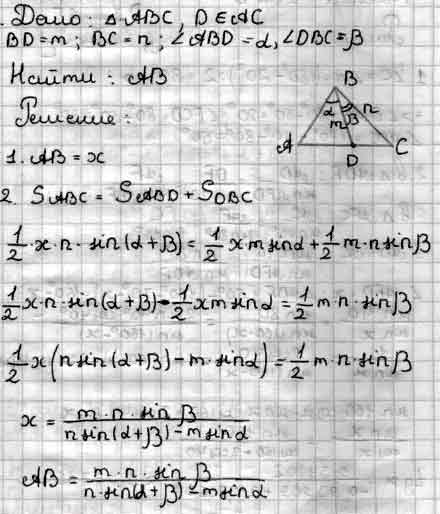 Дано: △ABC, D∈AC
BD=m; BC=n; ∠ABD=α, ∠DBC=β
Найти: AB
Решение:
B
α
β
n
m
A
D
C
1. AB=x
2. S_ABC = S_ABD + S_DBC
1/2·x·n·sin(α+β)=1/2 x m sinα+1/2 m·n sinβ
1/2 x·n·sin(α+β)-1/2 x m sinα=1/2 m·n·sinβ
1/2 x(n sin(α+β)-m·sinα)=1/2 m·n·sinβ
x = m·n·sinβ / n sin(α+β)-m sinα
AB = m·n·sinβ / n·sin(α+β)-m sinα